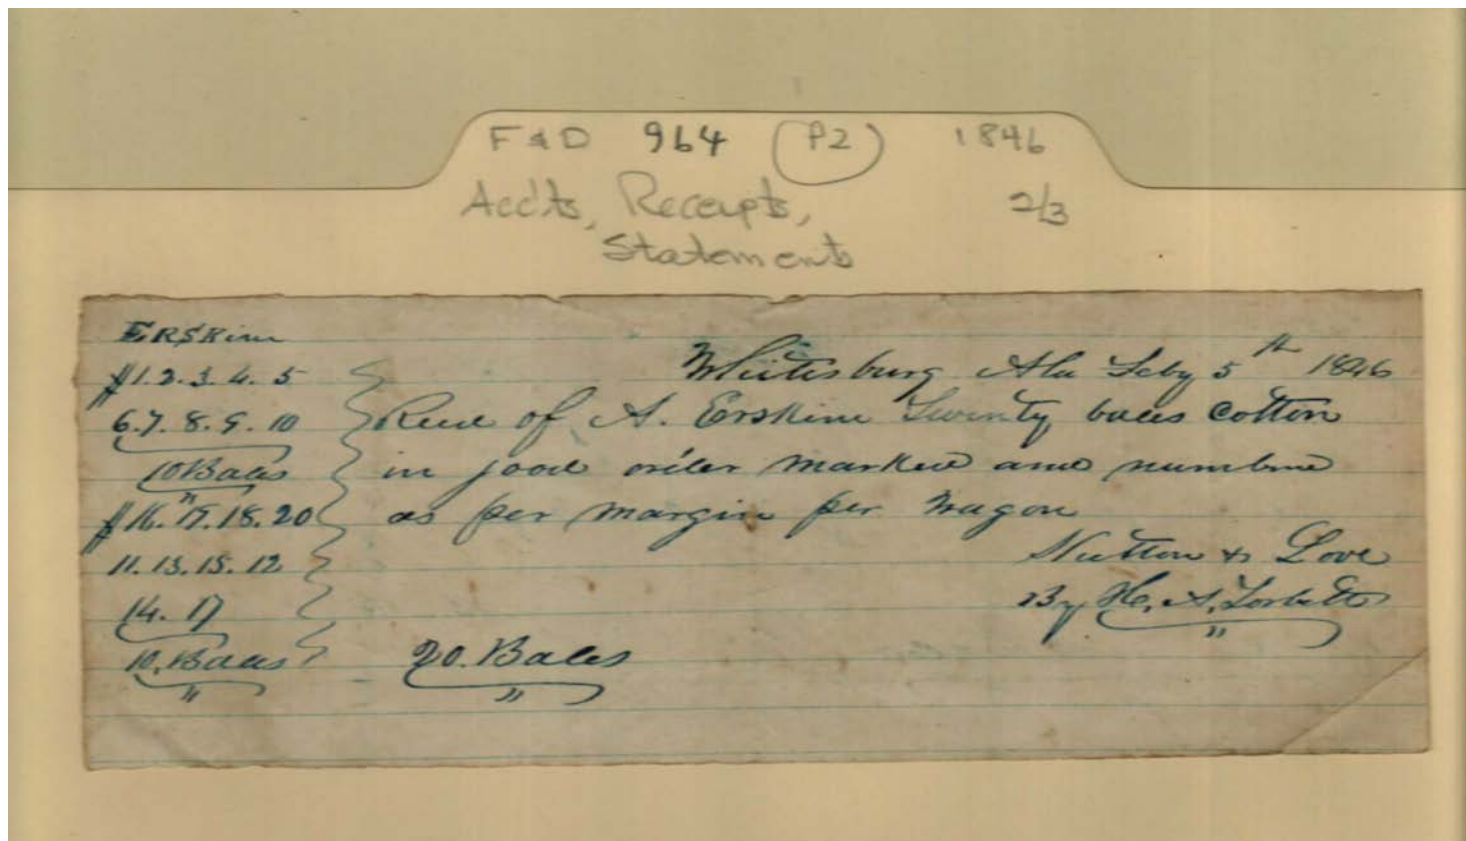 F & D 964 (P2) 1846
Acc'ts, Receipts, 2/3
Statements
ERSKine
#1.2.3.4.5
6.7.8.9.10
10 Bales
#16.17.18.20
11.13.15.12
14.17
10. Bales
Whitesburg Ala Feby 5th 1846
Recd of A. Erskine Twenty bales Cotton
in good order marked and numbred
as per margin per Wagon
& Love
By H. A.
20. Bales